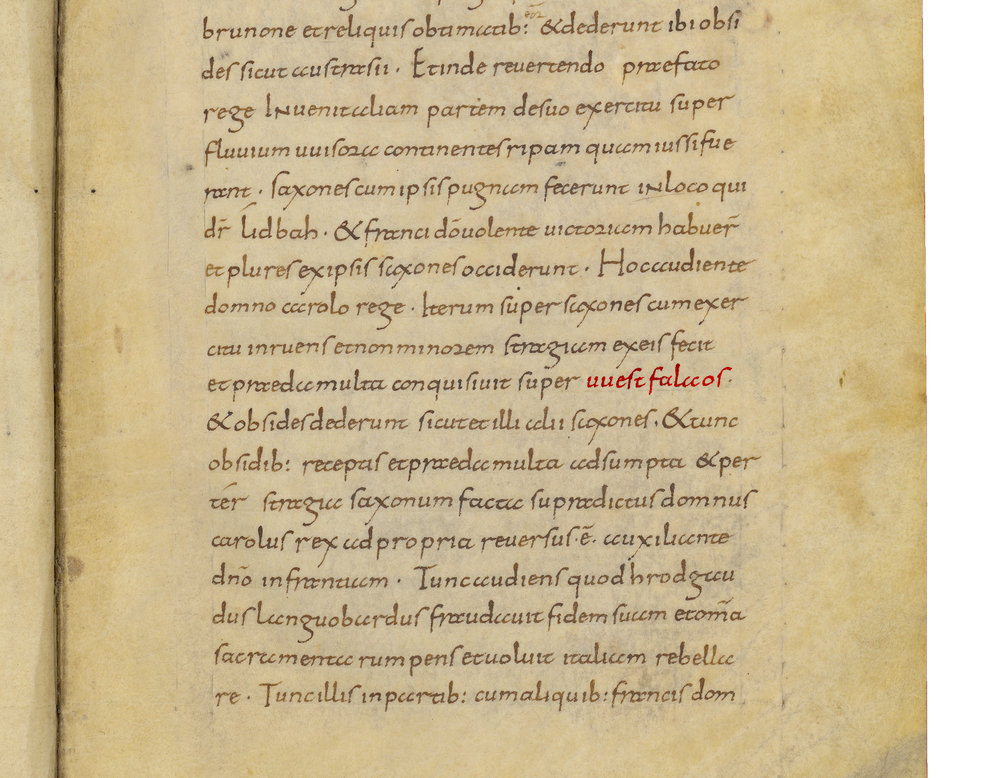 brunone et reliquis obtimatib: &dederunt ibi obsi
des sicut austrasii · Et inde revertendo praefato
rege INuenit aliam partem de suo exercitu super
fluuium uuisora continentes ripam quam iussi fue
rant · saxones cum ipsis pugnam fecerunt iN loco qui
dr̄ Lidbah · & franci dō uolente uictoriam habuer̄
et plures ex ipsis saxones occiderunt · Hoc audiente
domno carolo rege · Iterum super saxones cum exer
citu inruens et non minorem stragiam ex eis fecit
et praeda multa conquisiuit super uuestfalaos ·
& obsides dederunt sicut et illi alii saxones · & tunc
obsidib: receptis et praeda multa adsumpta & per
tēr stragia saxonum facta supradictus domnus
carolus rex ad propria reuersus · ē · auxiliante
dn̄o in frantiam · Tunc audiens quod hrodgau
dus langobardus fraudauit fidem suam et om̄a
sacramenta rumpens et uoluit italiam rebella
re · Tunc illis in partib: cum aliquib: francis dom